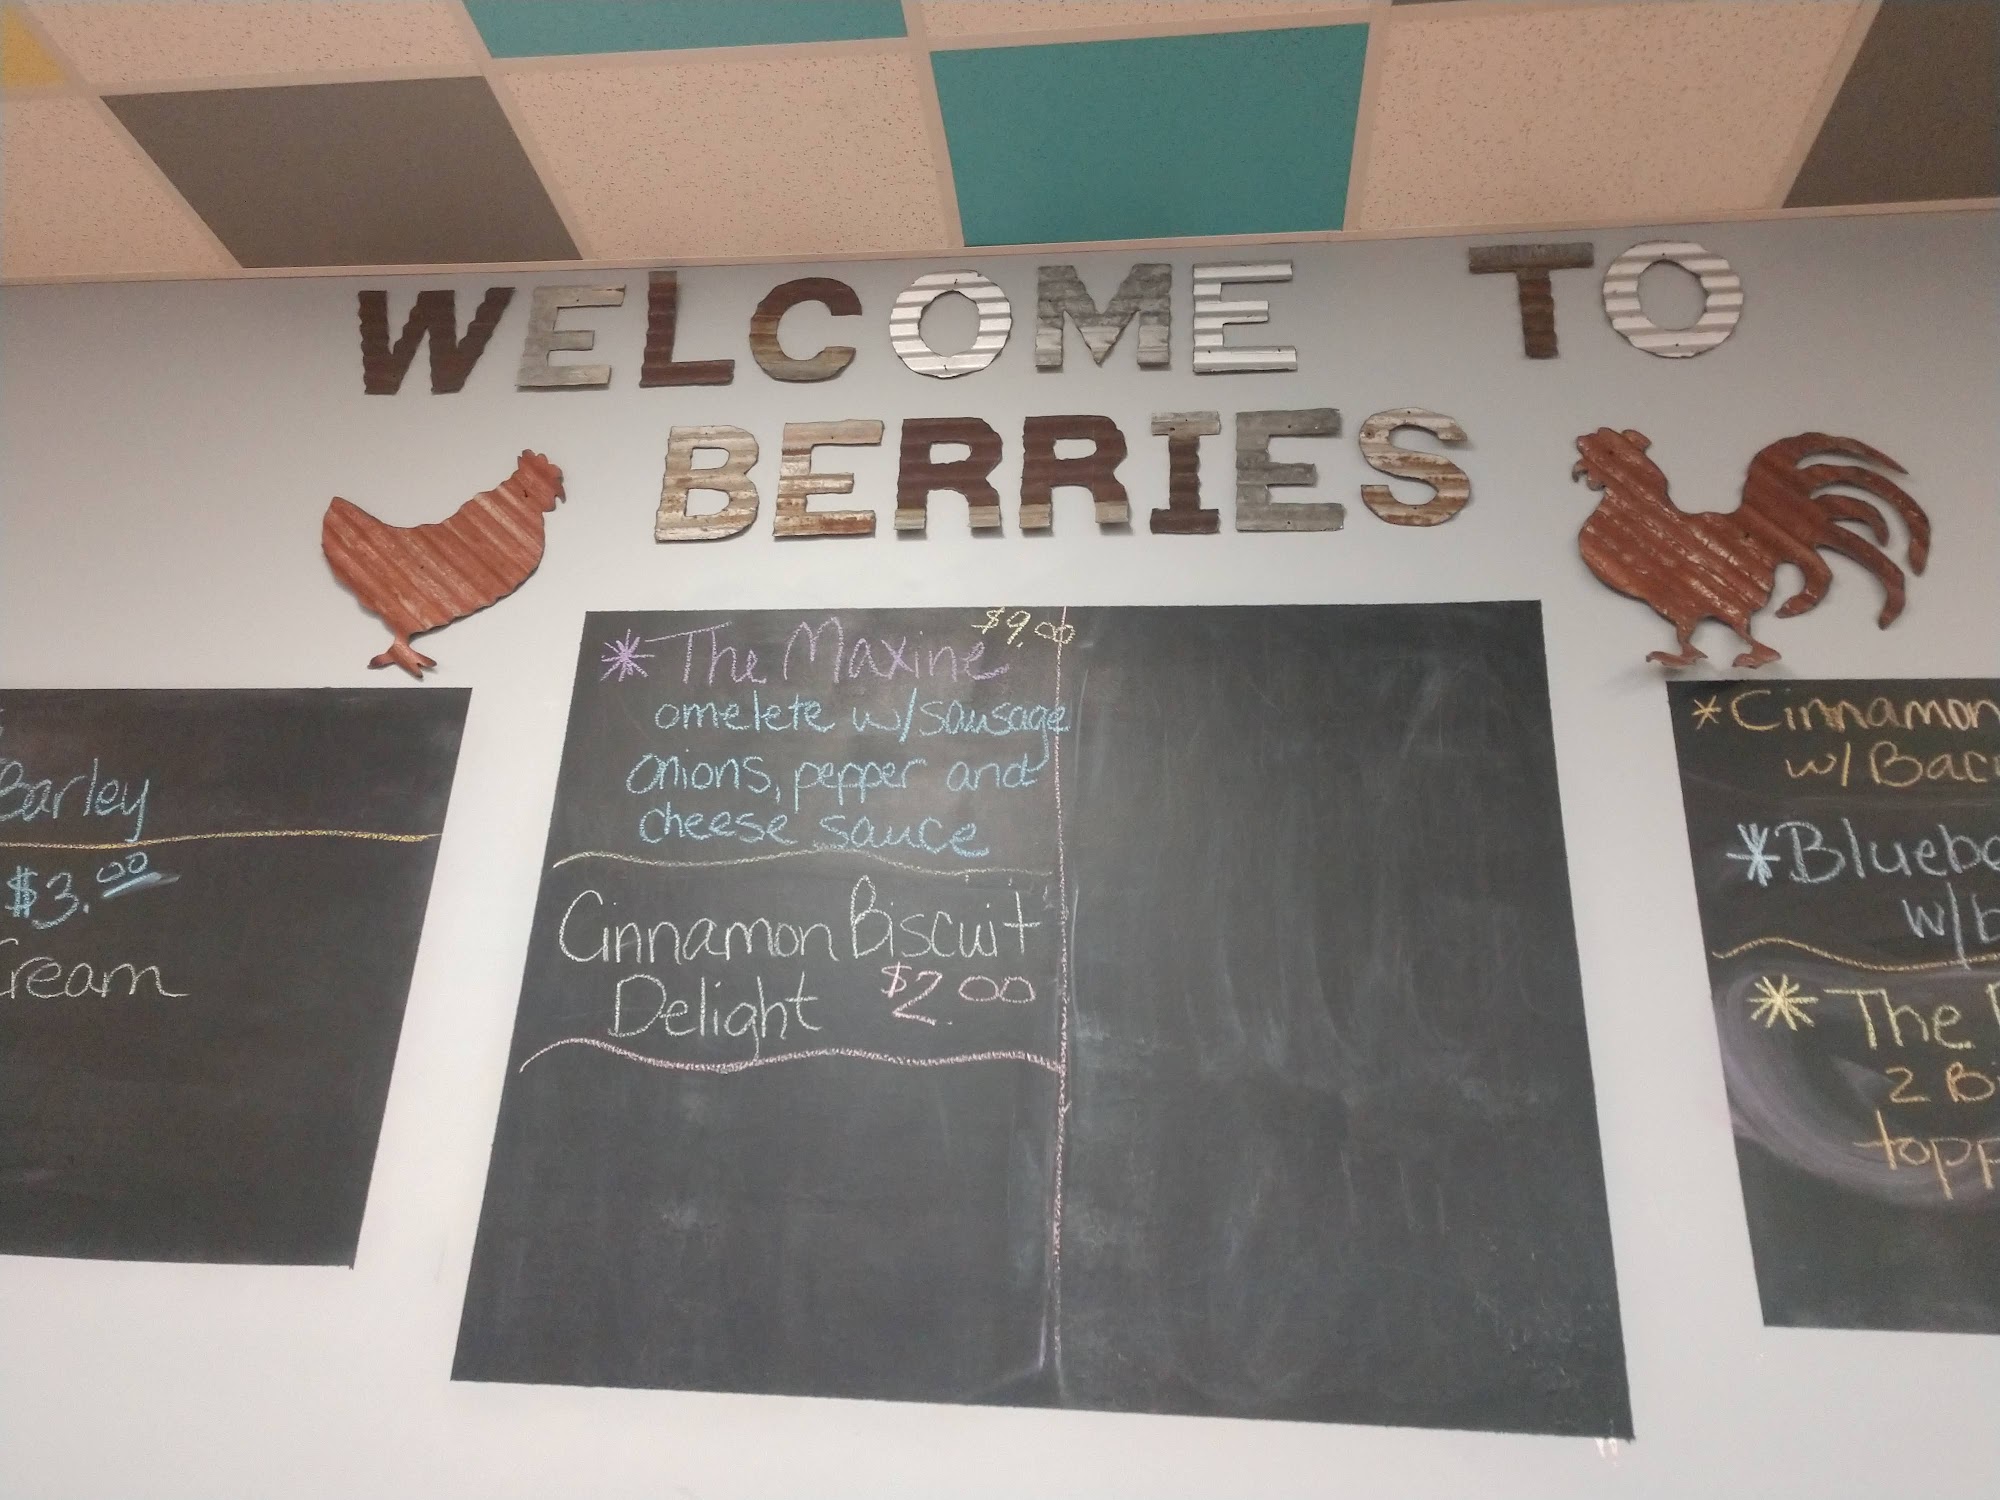 WELCOME TO
BERRIES
Barley
$3.00
Cream
* The Maxine $9.00
omelete w/sausage
onions, pepper and
cheese sauce
Cinnamon Biscuit
Delight $2.00
* Cinnamon
w/
*
w/
* The
2